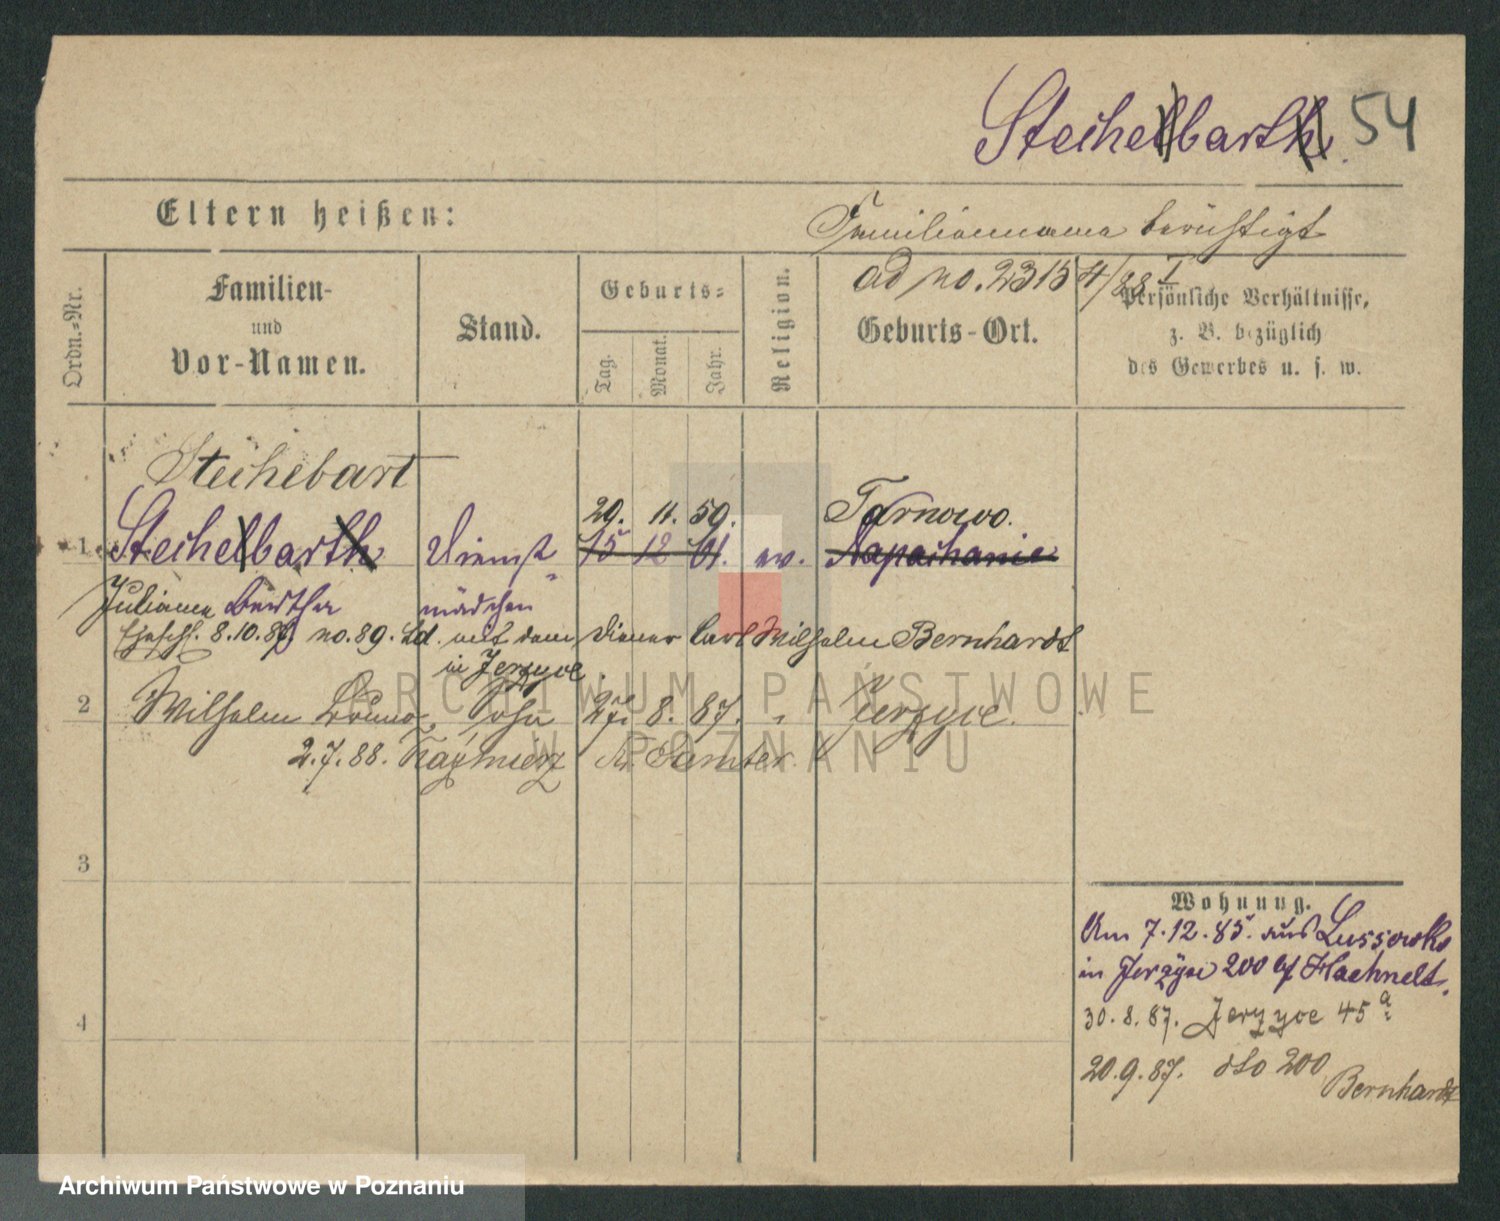 Stechelbarth 54
Eltern heißen:
Familienname berichtigt
ad no. 23154/88 I
Ordn.-Nr.
Familien-
und
Vor-Namen.
Stand.
Geburts-
Tag.
Monat.
Jahr.
Religion.
Geburts-Ort.
Persönliche Verhältnisse,
z. B. bezüglich
des Gewerbes u. s. w.
Stechebart
29. 11. 59. Tarnowo.
1 Stechelbarth Dienst- 15 12 61. ev. Napachanie
Juliane Bertha mädchen
Eheschl. 8.10.87 no. 89. mit dem Diener Carl Wilhelm Bernhardt
in Jerzyce.
2 Wilhelm Bruno, Sohn 27. 8. 87. " Jerzyce.
2.7.88. Kazmierz Kr. Samter.
3
4
Wohnung.
Am 7.12.85. aus Lussowko
in Jerzyce 200 bf Haehnelt.
30.8.87. Jerzyce 45 a
20.9.87. dto 200
Bernhardt
ARCHIWUM PAŃSTWOWE
W POZNANIU
Archiwum Państwowe w Poznaniu